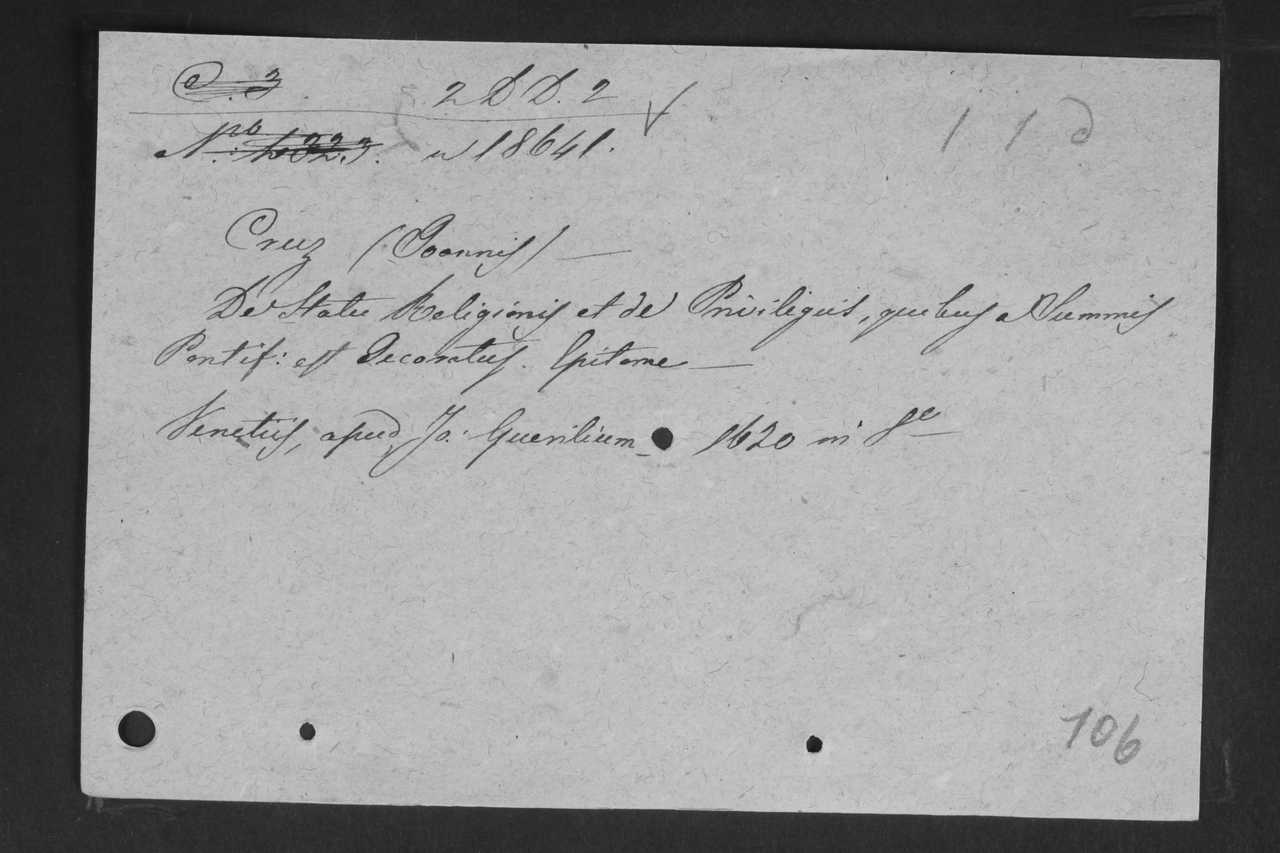 C. 3 2 D D. 2
N.ro 4323. n 18641.
1 1 d
Cruz (Joannis) —
De Statu Religionis et de Privilegiis, quibus a Summis
Pontif: est decoratus. Epitome —
Venetiis, apud Jo: Guerilium 1620 in 8º —
106